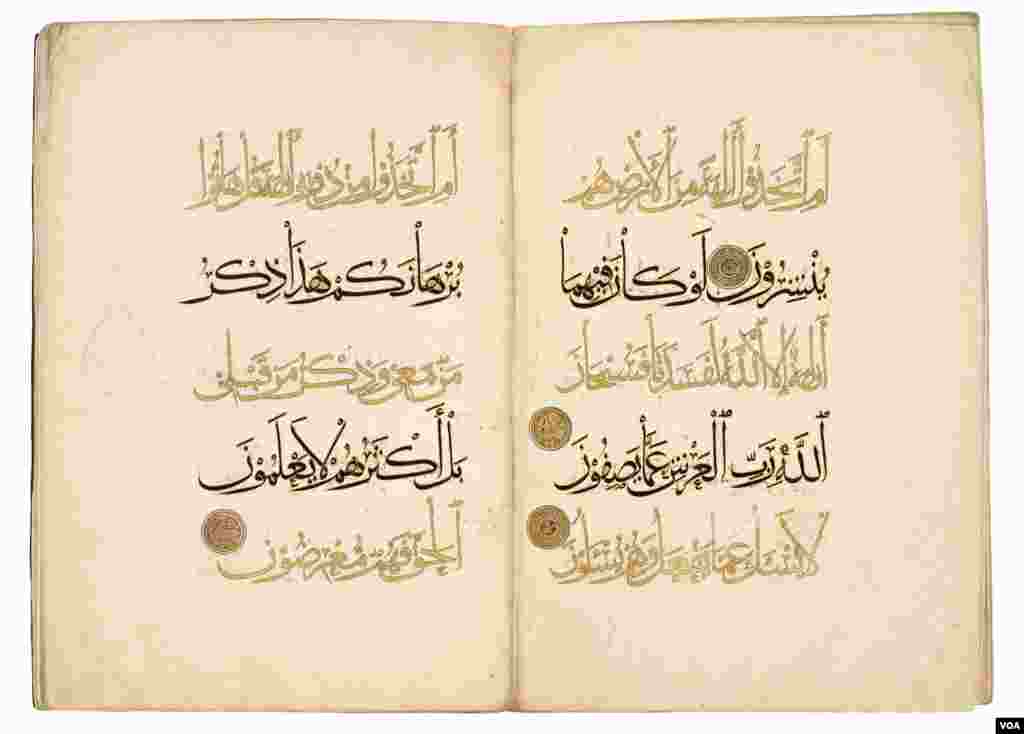 أَمِ ٱتَّخَذُوا آلِهَةً مِنَ ٱلْأَرْضِ هُمْ
يُنْشِرُونَ لَوْ كَانَ فِيهِمَا
آلِهَةٌ إِلَّا ٱللَّهُ لَفَسَدَتَا فَسُبْحَانَ
ٱللَّهِ رَبِّ ٱلْعَرْشِ عَمَّا يَصِفُونَ
لَا يُسْأَلُ عَمَّا يَفْعَلُ وَهُمْ يُسْأَلُونَ
أَمِ ٱتَّخَذُوا مِنْ دُونِهِ آلِهَةً قُلْ هَاتُوا
بُرْهَانَكُمْ هَذَا ذِكْرُ
مَنْ مَعِيَ وَذِكْرُ مَنْ قَبْلِي
بَلْ أَكْثَرُهُمْ لَا يَعْلَمُونَ
ٱلْحَقَّ فَهُمْ مُعْرِضُونَ
VOA